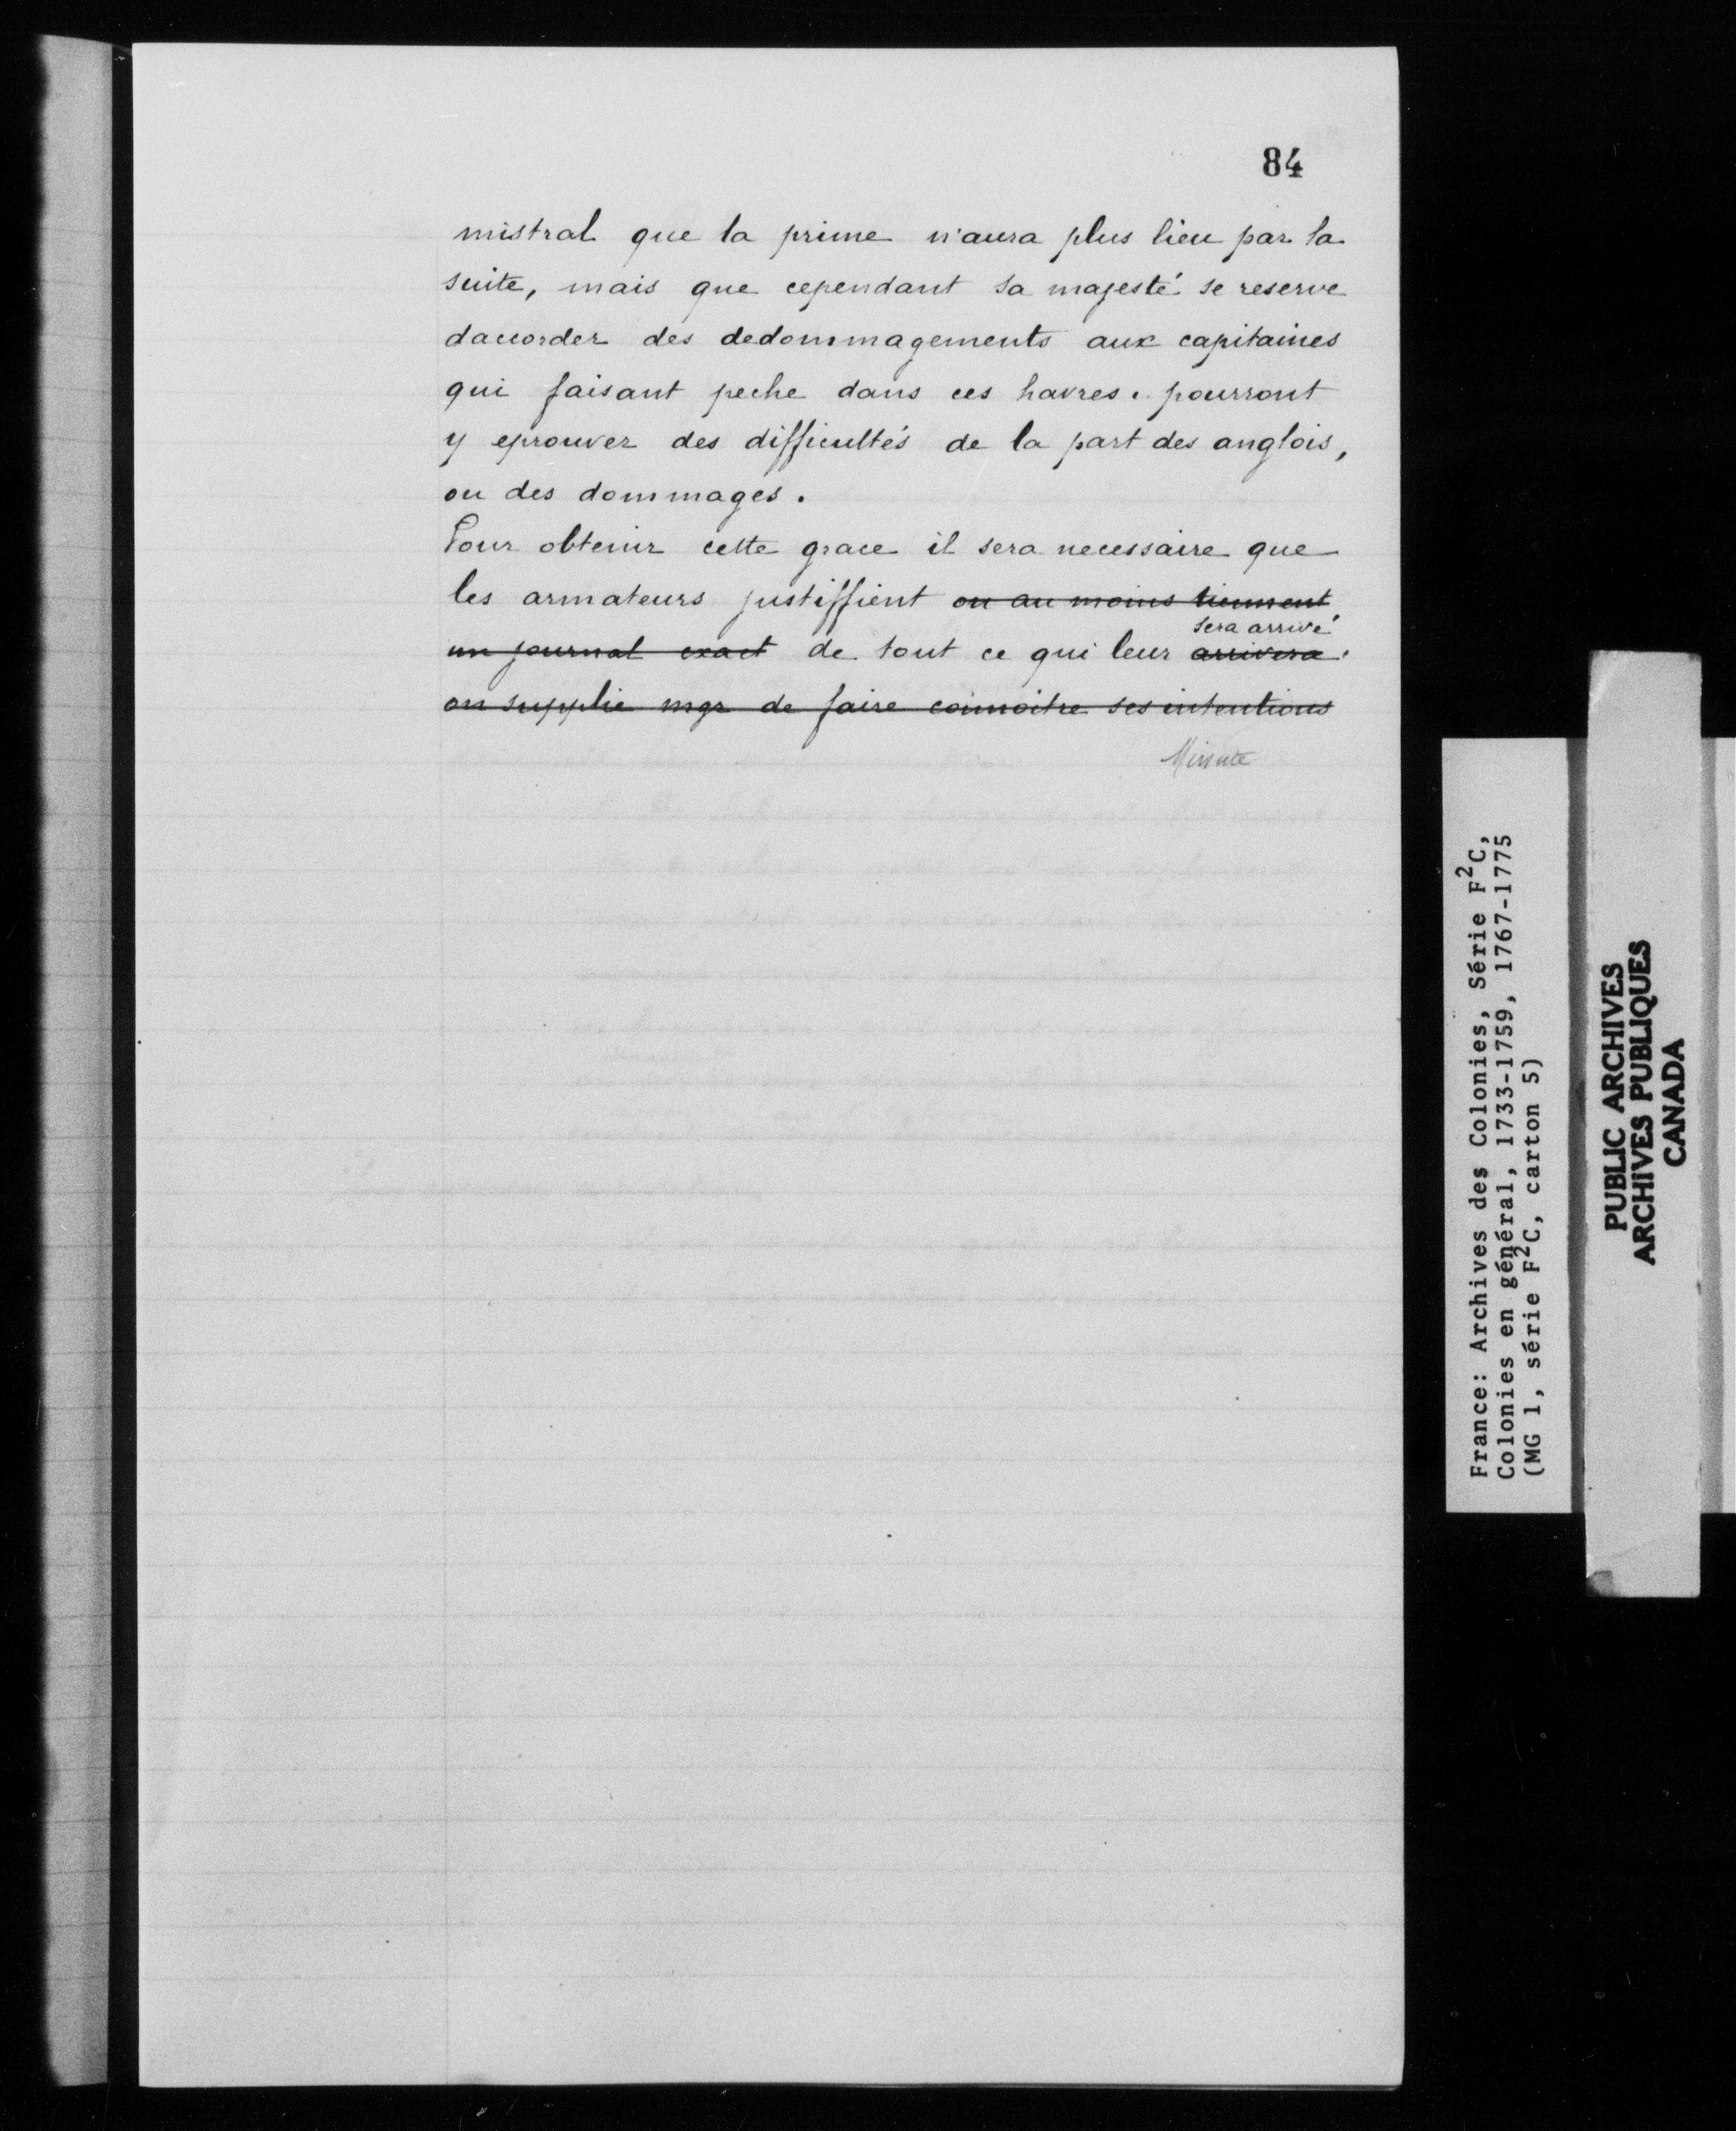 84
mistral que la prime n'aura plus lieu par la
suite, mais que cependant sa majesté se reserve
daccorder des dedommagements aux capitaines
qui faisant peche dans ces havres. pourront
y eprouver des difficultés de la part des anglois,
ou des dommages.
Pour obtenir cette grace il sera necessaire que
les armateurs justiffient ou au moins tiennent
sera arrivé
un journal exact de tout ce qui leur arrivera.
on supplie mgr de faire connoitre ses intentions
Minute
France: Archives des Colonies, Série F²C,
Colonies en général, 1733-1759, 1767-1775
(MG 1, série F²C, carton 5)
PUBLIC ARCHIVES
ARCHIVES PUBLIQUES
CANADA